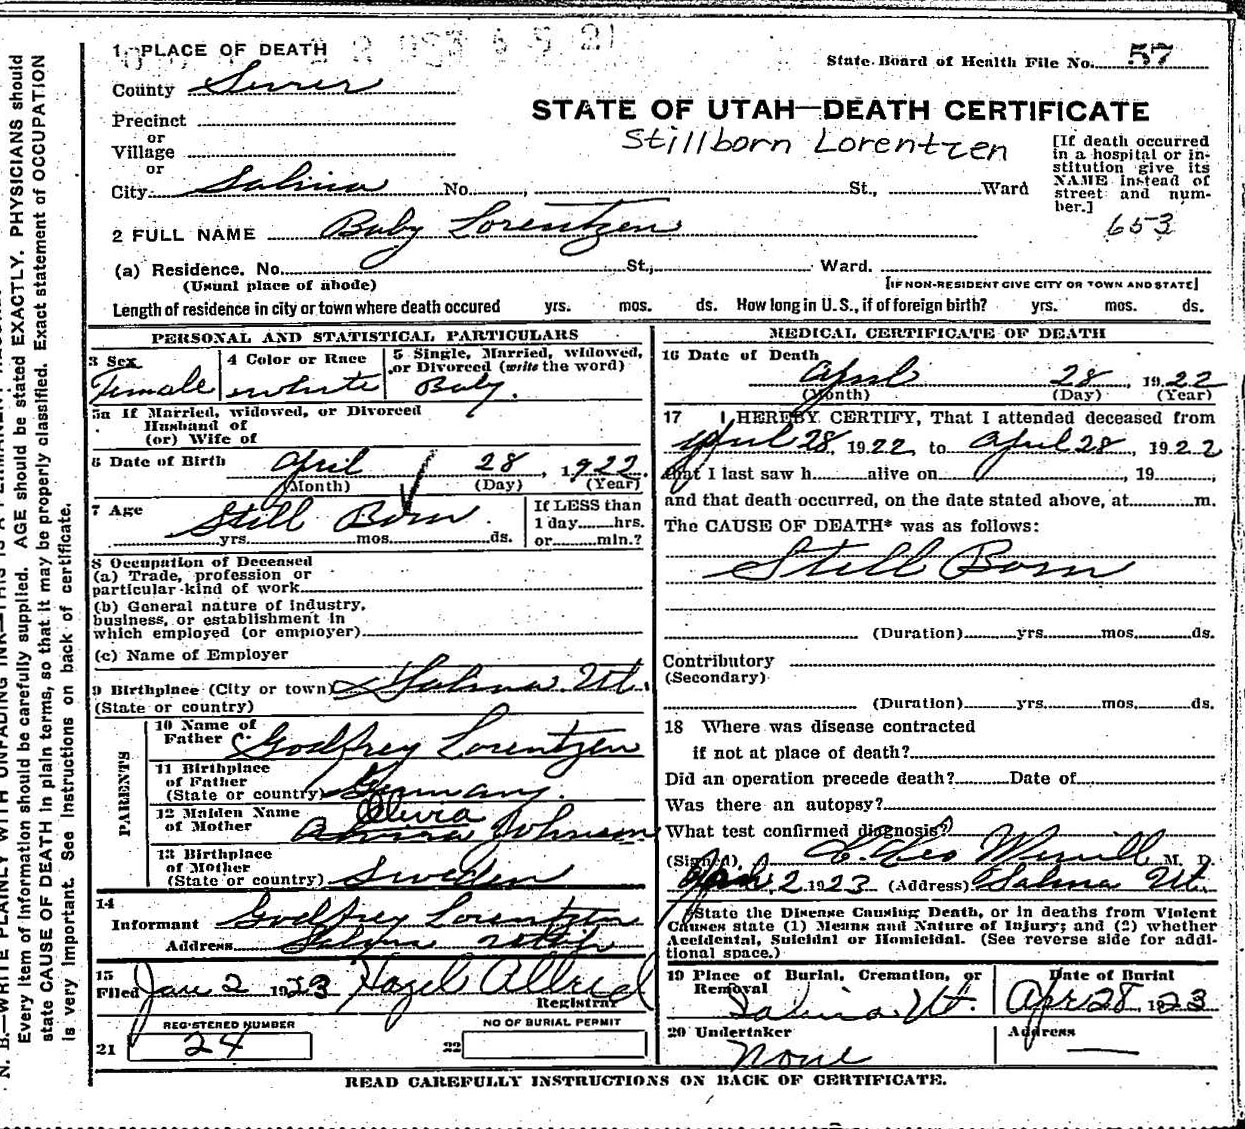 1 PLACE OF DEATH
State Board of Health File No. 57
County Sevier
STATE OF UTAH—DEATH CERTIFICATE
Precinct
or
Village
or
Stillborn Lorentzen
[If death occurred in a hospital or institution give its NAME instead of street and number.]
City Salina No. , St., Ward
653
2 FULL NAME Baby Lorentzen
(a) Residence. No. St., Ward.
(Usual place of abode) [IF NON-RESIDENT GIVE CITY OR TOWN AND STATE]
Length of residence in city or town where death occured yrs. mos. ds. How long in U.S., if of foreign birth? yrs. mos. ds.
PERSONAL AND STATISTICAL PARTICULARS
3 Sex Female
4 Color or Race white
5 Single, Married, widowed, or Divorced (write the word) Baby.
5a If Married, widowed, or Divorced
Husband of
(or) Wife of
6 Date of Birth April 28, 1922.
(Month) (Day) (Year)
7 Age Still Born
yrs. mos. ds.
If LESS than
1 day hrs.
or min.?
8 Occupation of Deceased
(a) Trade, profession or
particular kind of work
(b) General nature of industry,
business, or establishment in
which employed (or employer)
(c) Name of Employer
9 Birthplace (City or town) Salina Ut.
(State or country)
PARENTS
10 Name of
Father C. Godfrey Lorentzen
11 Birthplace
of Father
(State or country) Germany.
12 Maiden Name
of Mother Olivia Johnson
13 Birthplace
of Mother
(State or country) Sweden
14
Informant Godfrey Lorentzen
Address Salina Utah
15
Filed Jan 2 1923 Hazel Allred
Registrar
REGISTERED NUMBER
21 24
NO OF BURIAL PERMIT
22
MEDICAL CERTIFICATE OF DEATH
16 Date of Death
April 28, 1922
(Month) (Day) (Year)
17 I HEREBY CERTIFY, That I attended deceased from
April 28, 1922 to April 28, 1922
that I last saw h alive on , 19 ,
and that death occurred, on the date stated above, at m.
The CAUSE OF DEATH* was as follows:
Still Born
(Duration) yrs. mos. ds.
Contributory
(Secondary)
(Duration) yrs. mos. ds.
18 Where was disease contracted
if not at place of death?
Did an operation precede death? Date of
Was there an autopsy?
What test confirmed diagnosis?
(Signed) M. D.
2 1923 (Address) Salina Ut.
*State the Disease Causing Death, or in deaths from Violent
Causes state (1) Means and Nature of Injury; and (2) whether
Accidental, Suicidal or Homicidal. (See reverse side for additional space.)
19 Place of Burial, Cremation, or
Removal Salina Ut.
Date of Burial
Apr 28, 1923
20 Undertaker
None
Address
—
READ CAREFULLY INSTRUCTIONS ON BACK OF CERTIFICATE.
N. B.—WRITE PLAINLY WITH UNFADING INK—THIS IS A PERMANENT
Every item of information should be carefully supplied. AGE should be stated EXACTLY. PHYSICIANS should
state CAUSE OF DEATH in plain terms, so that it may be properly classified. Exact statement of OCCUPATION
is very important. See instructions on back of certificate.